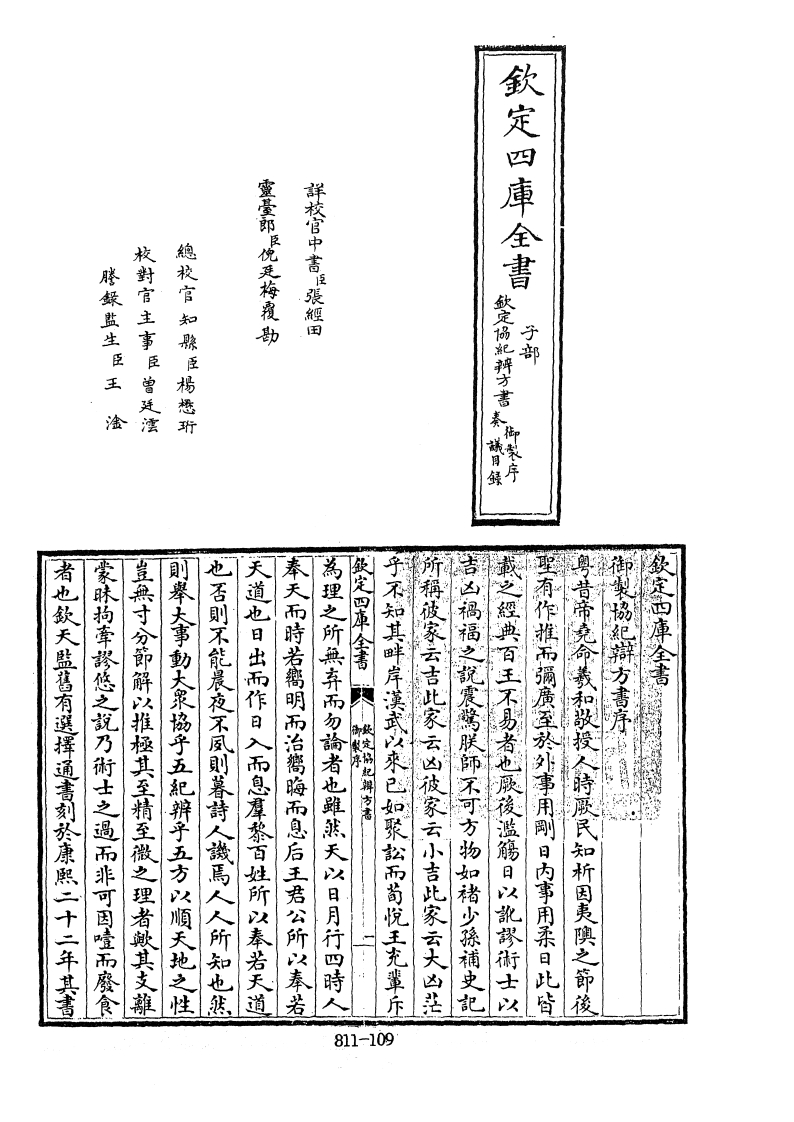 欽定四庫全書
子部
欽定協紀辨方書
御製序
奏議目錄
詳校官中書臣張經田
靈臺郎臣倪廷梅覆勘
總校官知縣臣楊懋珩
校對官主事臣曾廷澐
謄錄監生臣王淦
欽定四庫全書
御製協紀辯方書序
粵昔帝堯命羲和敬授人時厥民知析因夷隩之節後
聖有作推而彌廣至於外事用剛日内事用柔日此皆
載之經典百王不易者也厥後濫觴日以訛謬術士以
吉凶禍福之說震驚朕師不可方物如褚少孫補史記
所稱彼家云吉此家云凶彼家云小吉此家云大凶茫
乎不知其畔岸漢武以來已如聚訟而荀悅王充輩斥
欽定四庫全書
欽定協紀辨方書
御製序
一
為理之所無弃而勿論者也雖然天以日月行四時人
奉天而時若嚮明而治嚮晦而息后王君公所以奉若
天道也日出而作日入而息羣黎百姓所以奉若天道
也否則不能晨夜不夙則暮詩人譏焉人人所知也然
則舉大事動大衆協乎五紀辨乎五方以順天地之性
豈無寸分節解以推極其至精至微之理者歟其支離
蒙昧拘牽謬悠之說乃術士之過而非可因噎而廢食
者也欽天監舊有選擇通書刻於康熙二十二年其書
811-109